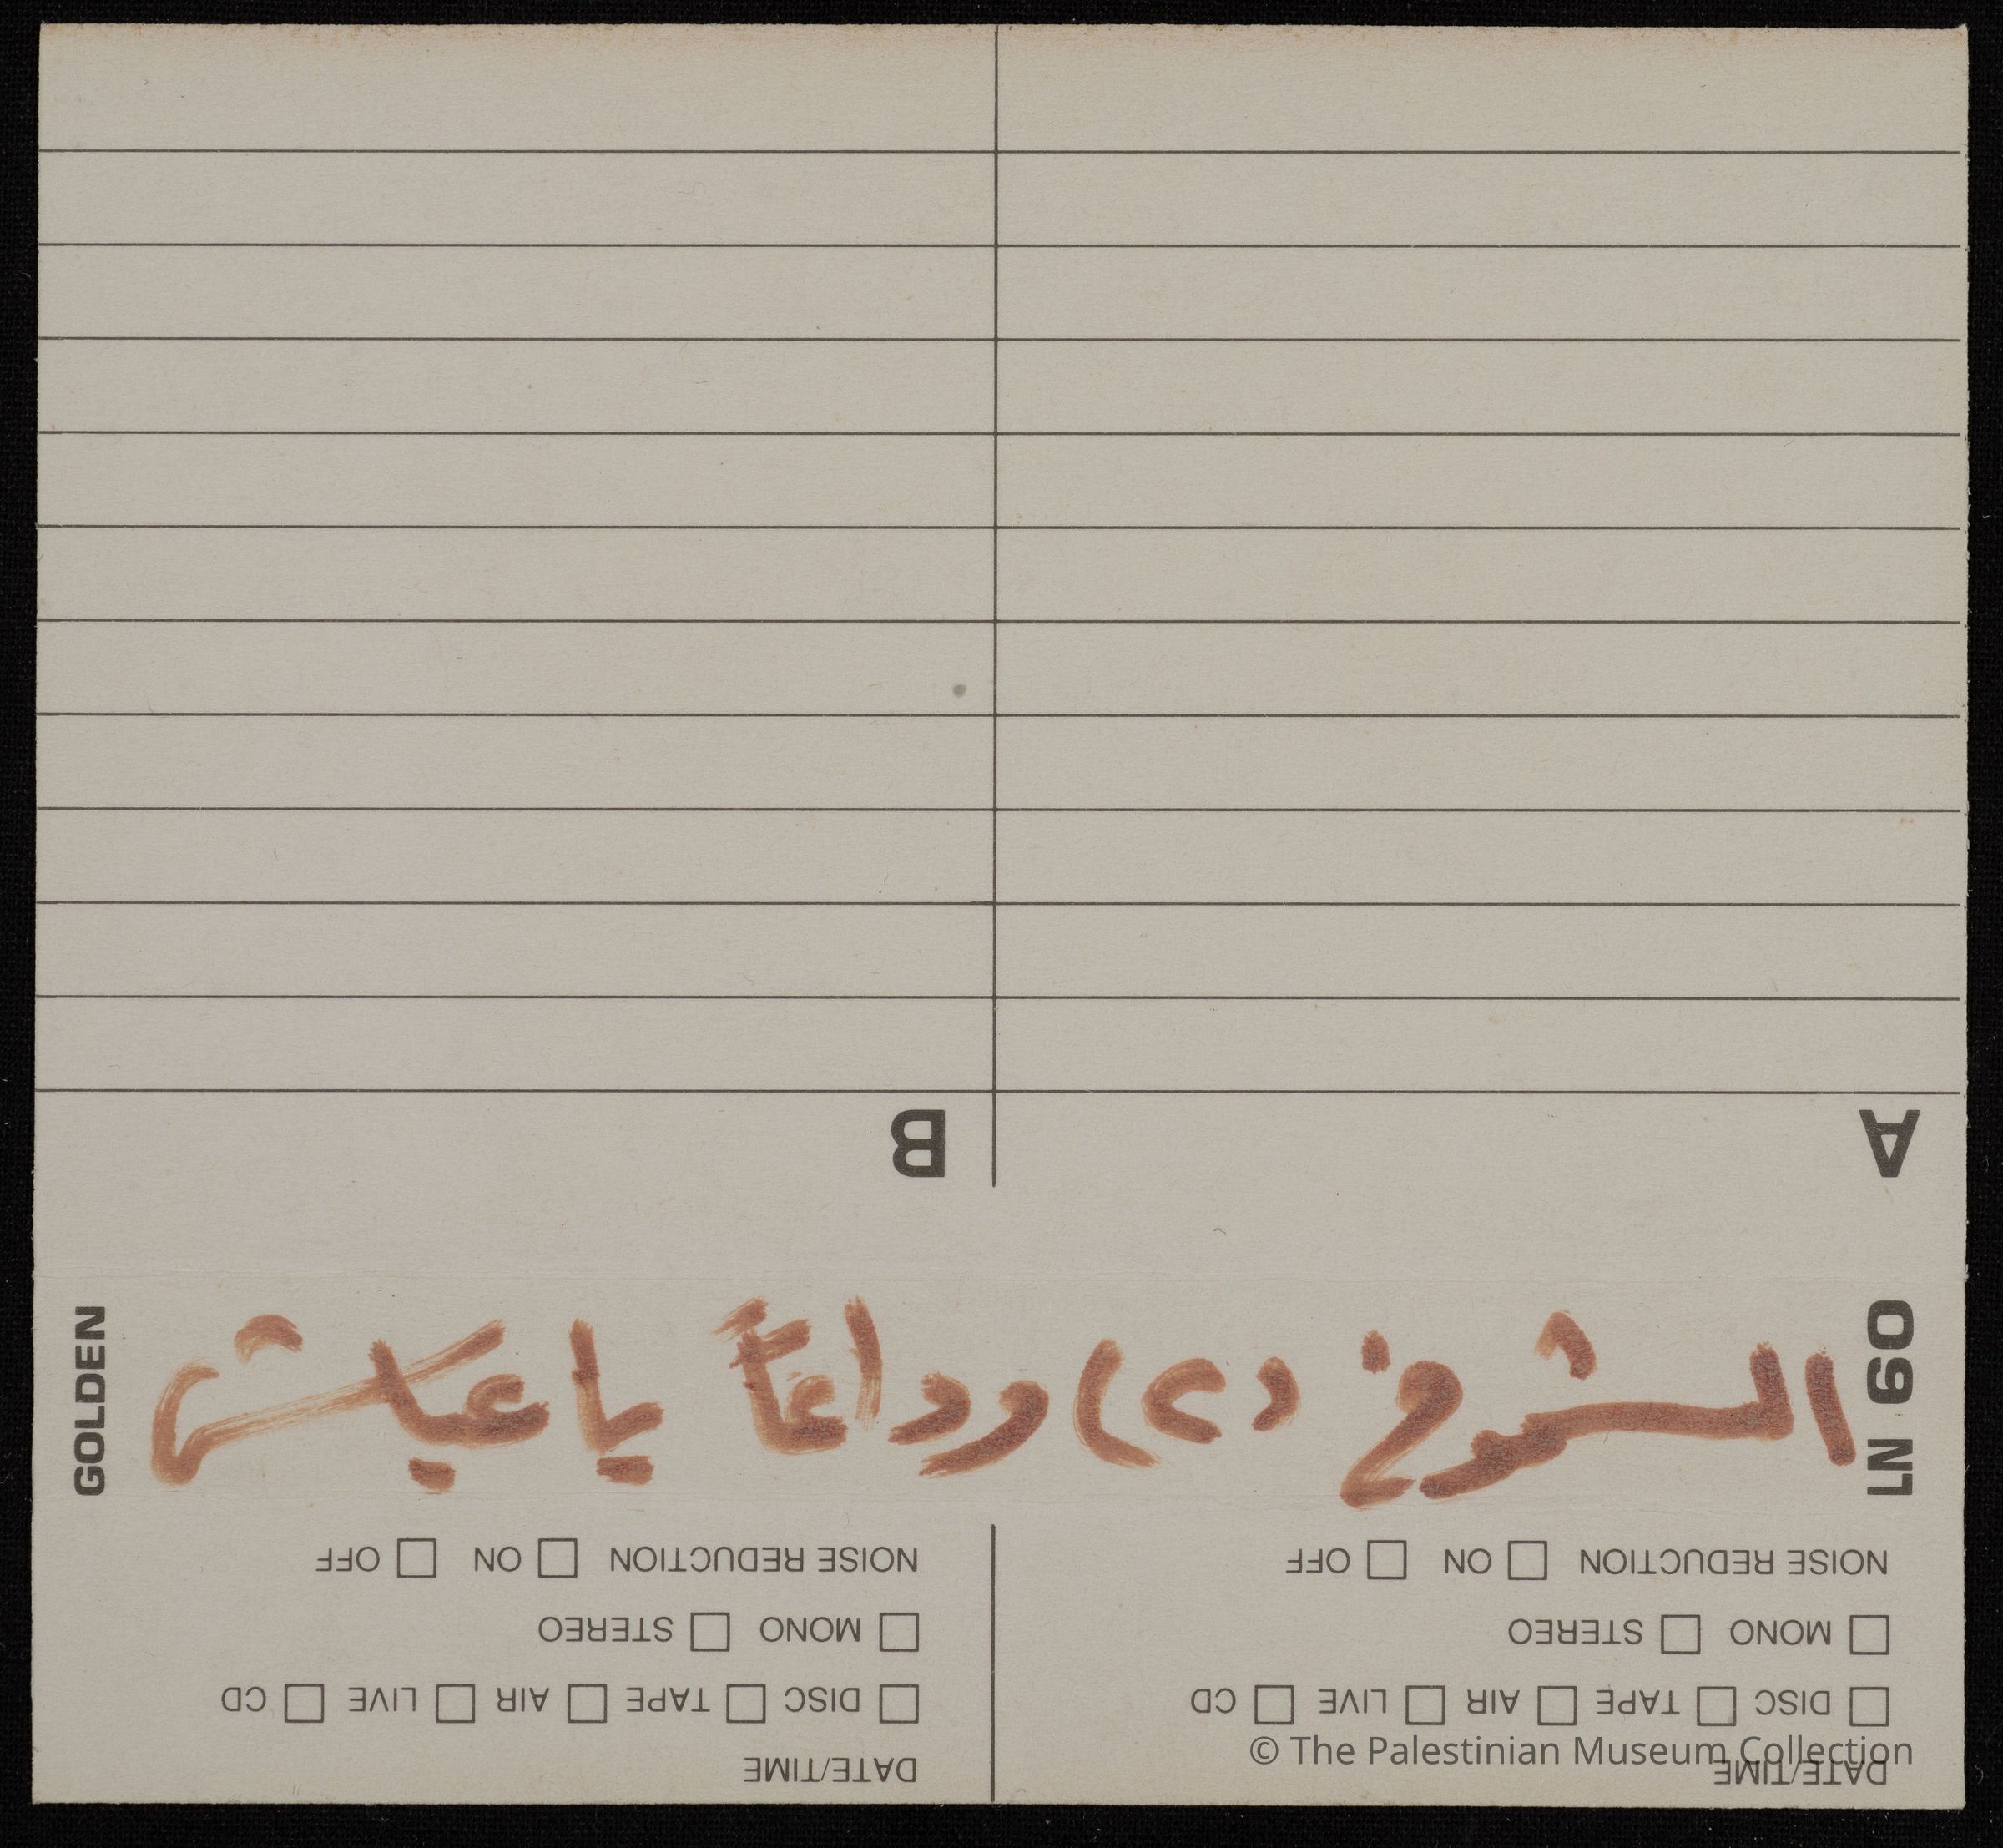 DATE/TIME
DISC TAPE AIR LIVE CD
MONO STEREO
NOISE REDUCTION ON OFF
DATE/TIME
DISC TAPE AIR LIVE CD
MONO STEREO
NOISE REDUCTION ON OFF
LN 60
وداعاً يا
GOLDEN
A
B
© The Palestinian Museum Collection